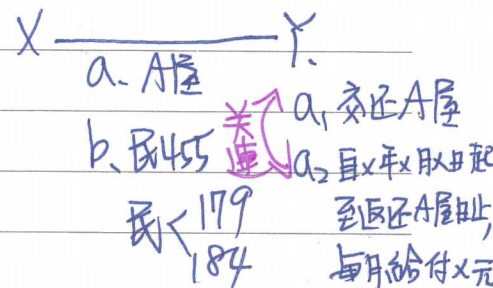 X Y.
a. A屋
b. 民455
民 179
184
关連
a1 交还A屋
a2 自x年x月x日起
至返还A屋日止,
每月给付x元